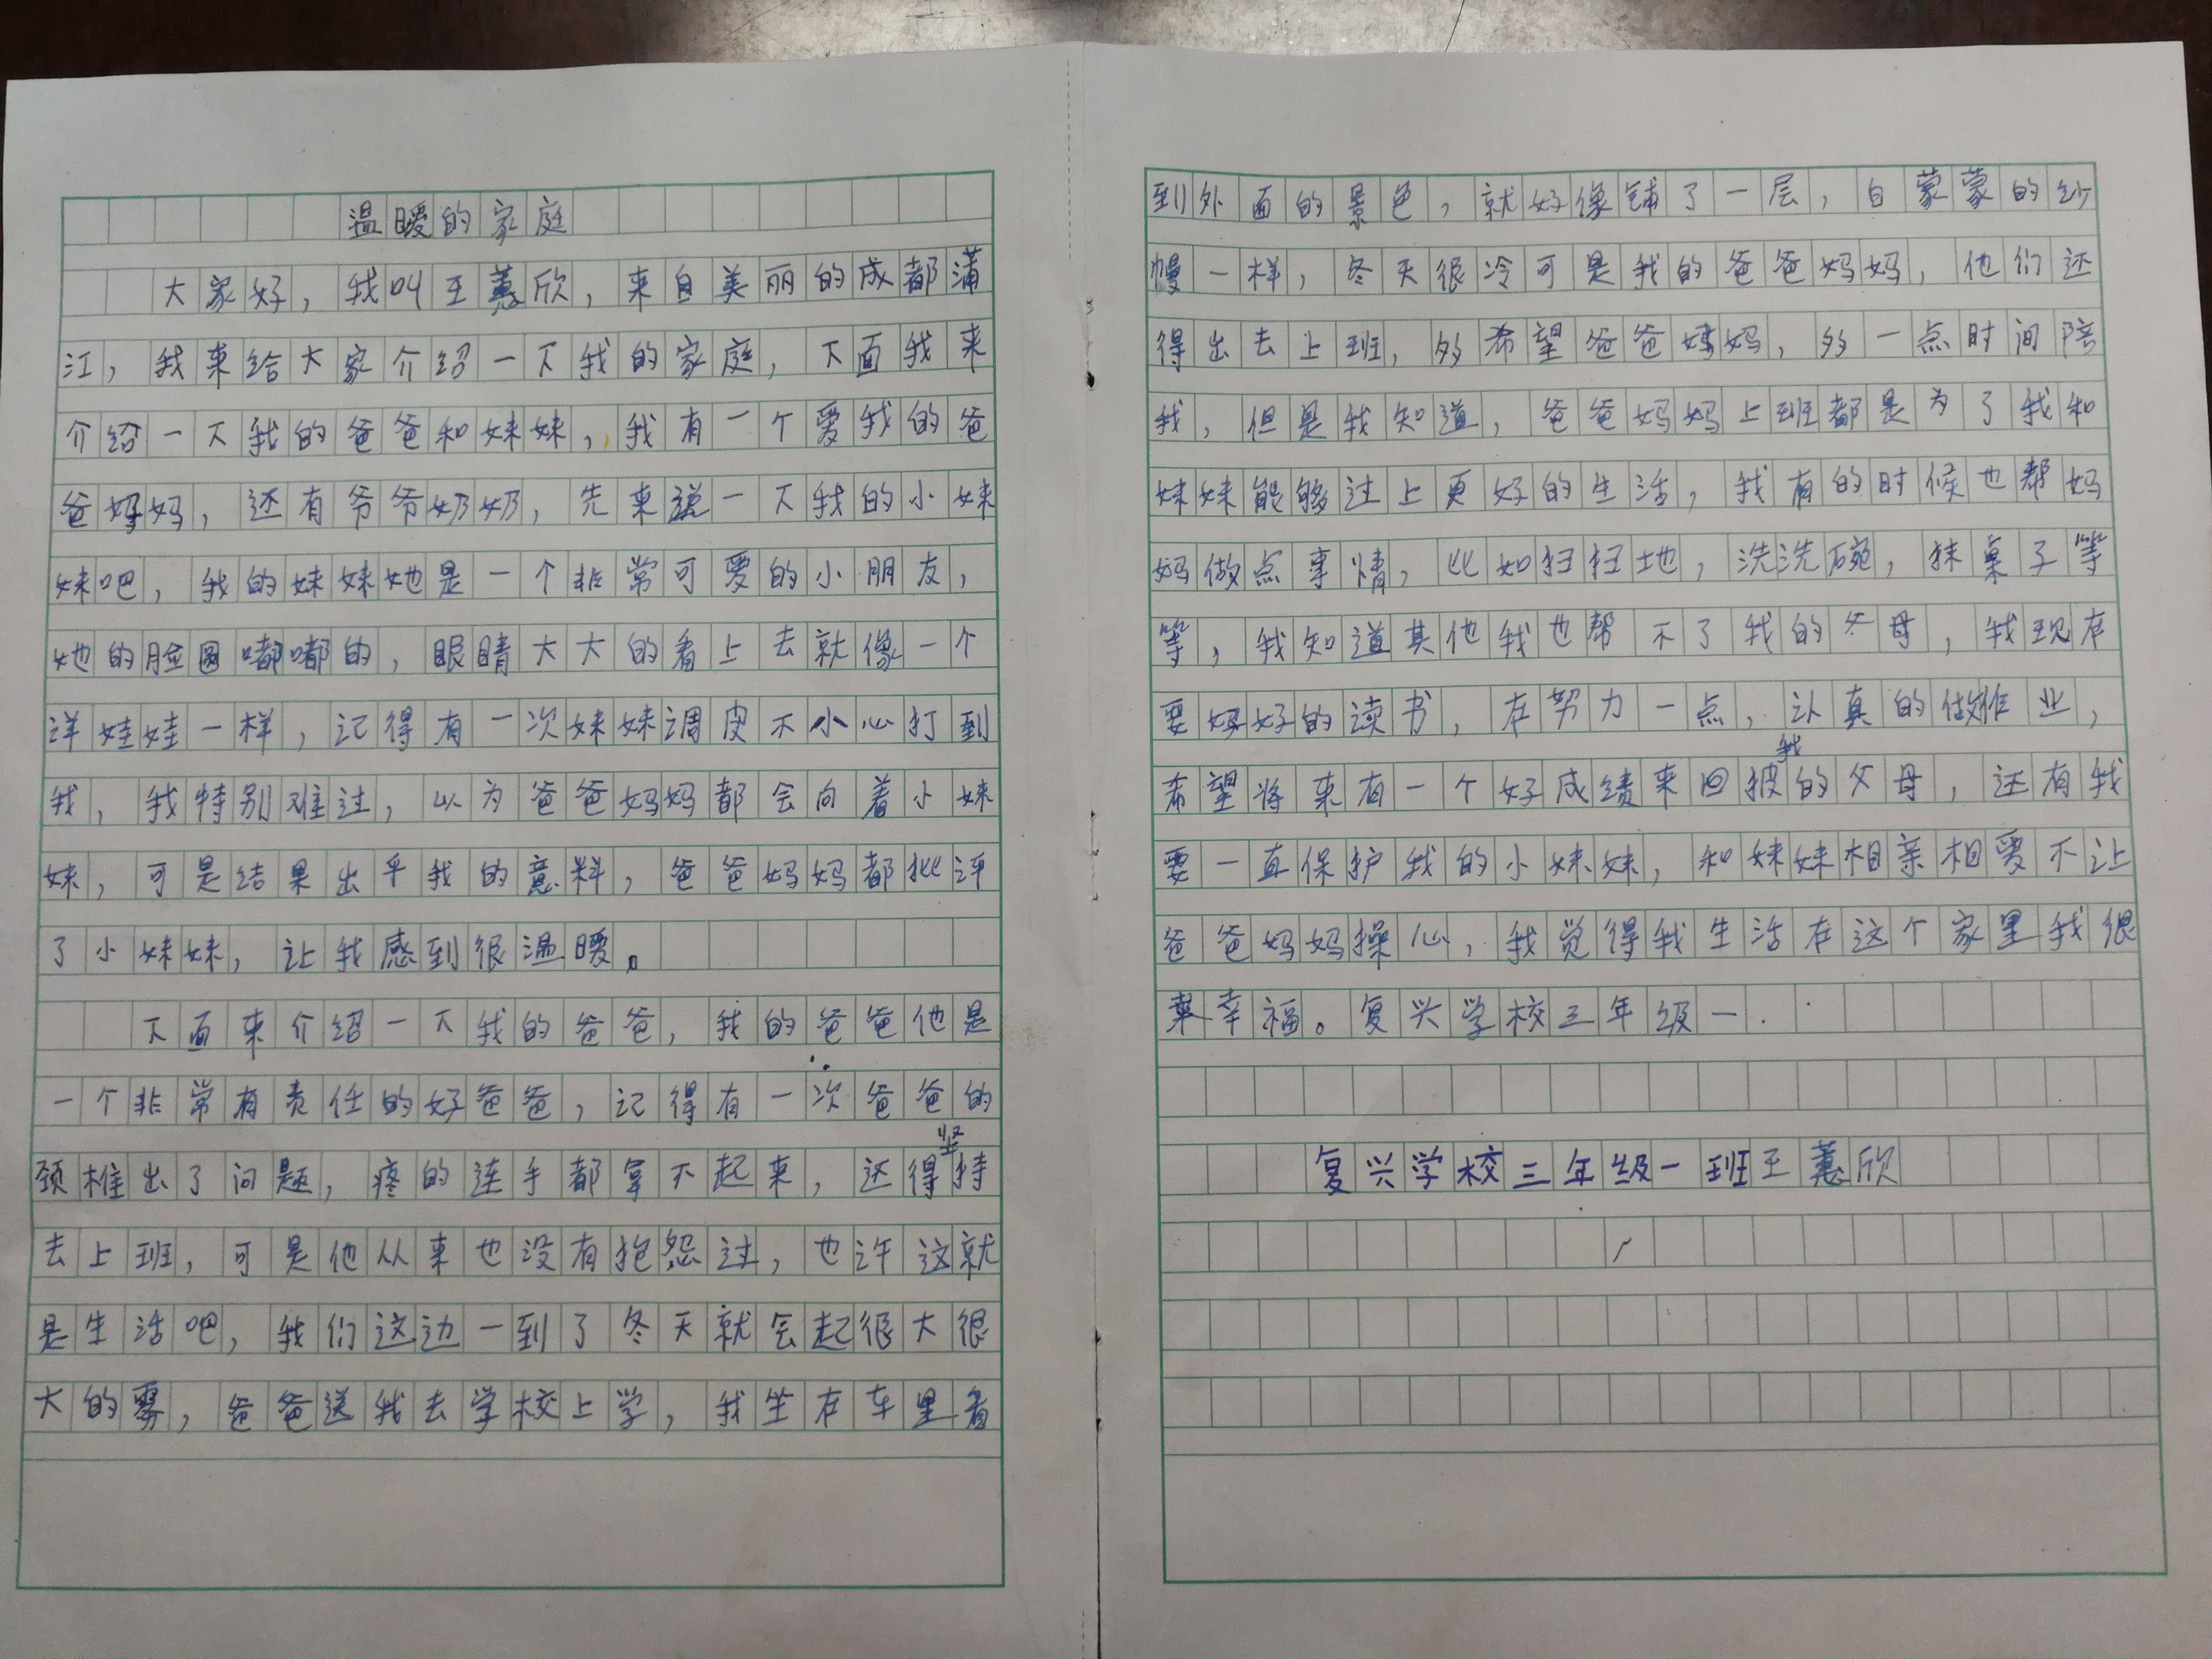 温暖的家庭
大家好，我叫王蕙欣，来自美丽的成都蒲
江，我来给大家介绍一下我的家庭，下面我来
介绍一下我的爸爸和妹妹，我有一个爱我的爸
爸妈妈，还有爷爷奶奶，先来说一下我的小妹
妹吧，我的妹妹她是一个非常可爱的小朋友，
她的脸圆嘟嘟的，眼睛大大的看上去就像一个
洋娃娃一样，记得有一次妹妹调皮不小心打到
我，我特别难过，以为爸爸妈妈都会向着小妹
妹，可是结果出乎我的意料，爸爸妈妈都批评
了小妹妹，让我感到很温暖。
下面来介绍一下我的爸爸，我的爸爸他是
一个非常有责任的好爸爸，记得有一次爸爸的
颈椎出了问题，疼的连手都拿不起来，还得坚持
去上班，可是他从来也没有抱怨过，也许这就
是生活吧，我们这边一到了冬天就会起很大很
大的雾，爸爸送我去学校上学，我坐在车里看
到外面的景色，就好像铺了一层，白蒙蒙的纱
幔一样，冬天很冷可是我的爸爸妈妈，他们还
得出去上班，多希望爸爸妈妈，多一点时间陪
我，但是我知道，爸爸妈妈上班都是为了我和
妹妹能够过上更好的生活，我有的时候也帮妈
妈做点事情，比如扫扫地，洗洗碗，抹桌子等
等，我知道其他我也帮不了我的父母，我现在
要好好的读书，在努力一点，认真的做作业，
希望将来有一个好成绩来回报我的父母，还有我
要一直保护我的小妹妹，和妹妹相亲相爱不让
爸爸妈妈操心，我觉得我生活在这个家里我很
幸福。复兴学校三年级一
复兴学校三年级一班王蕙欣